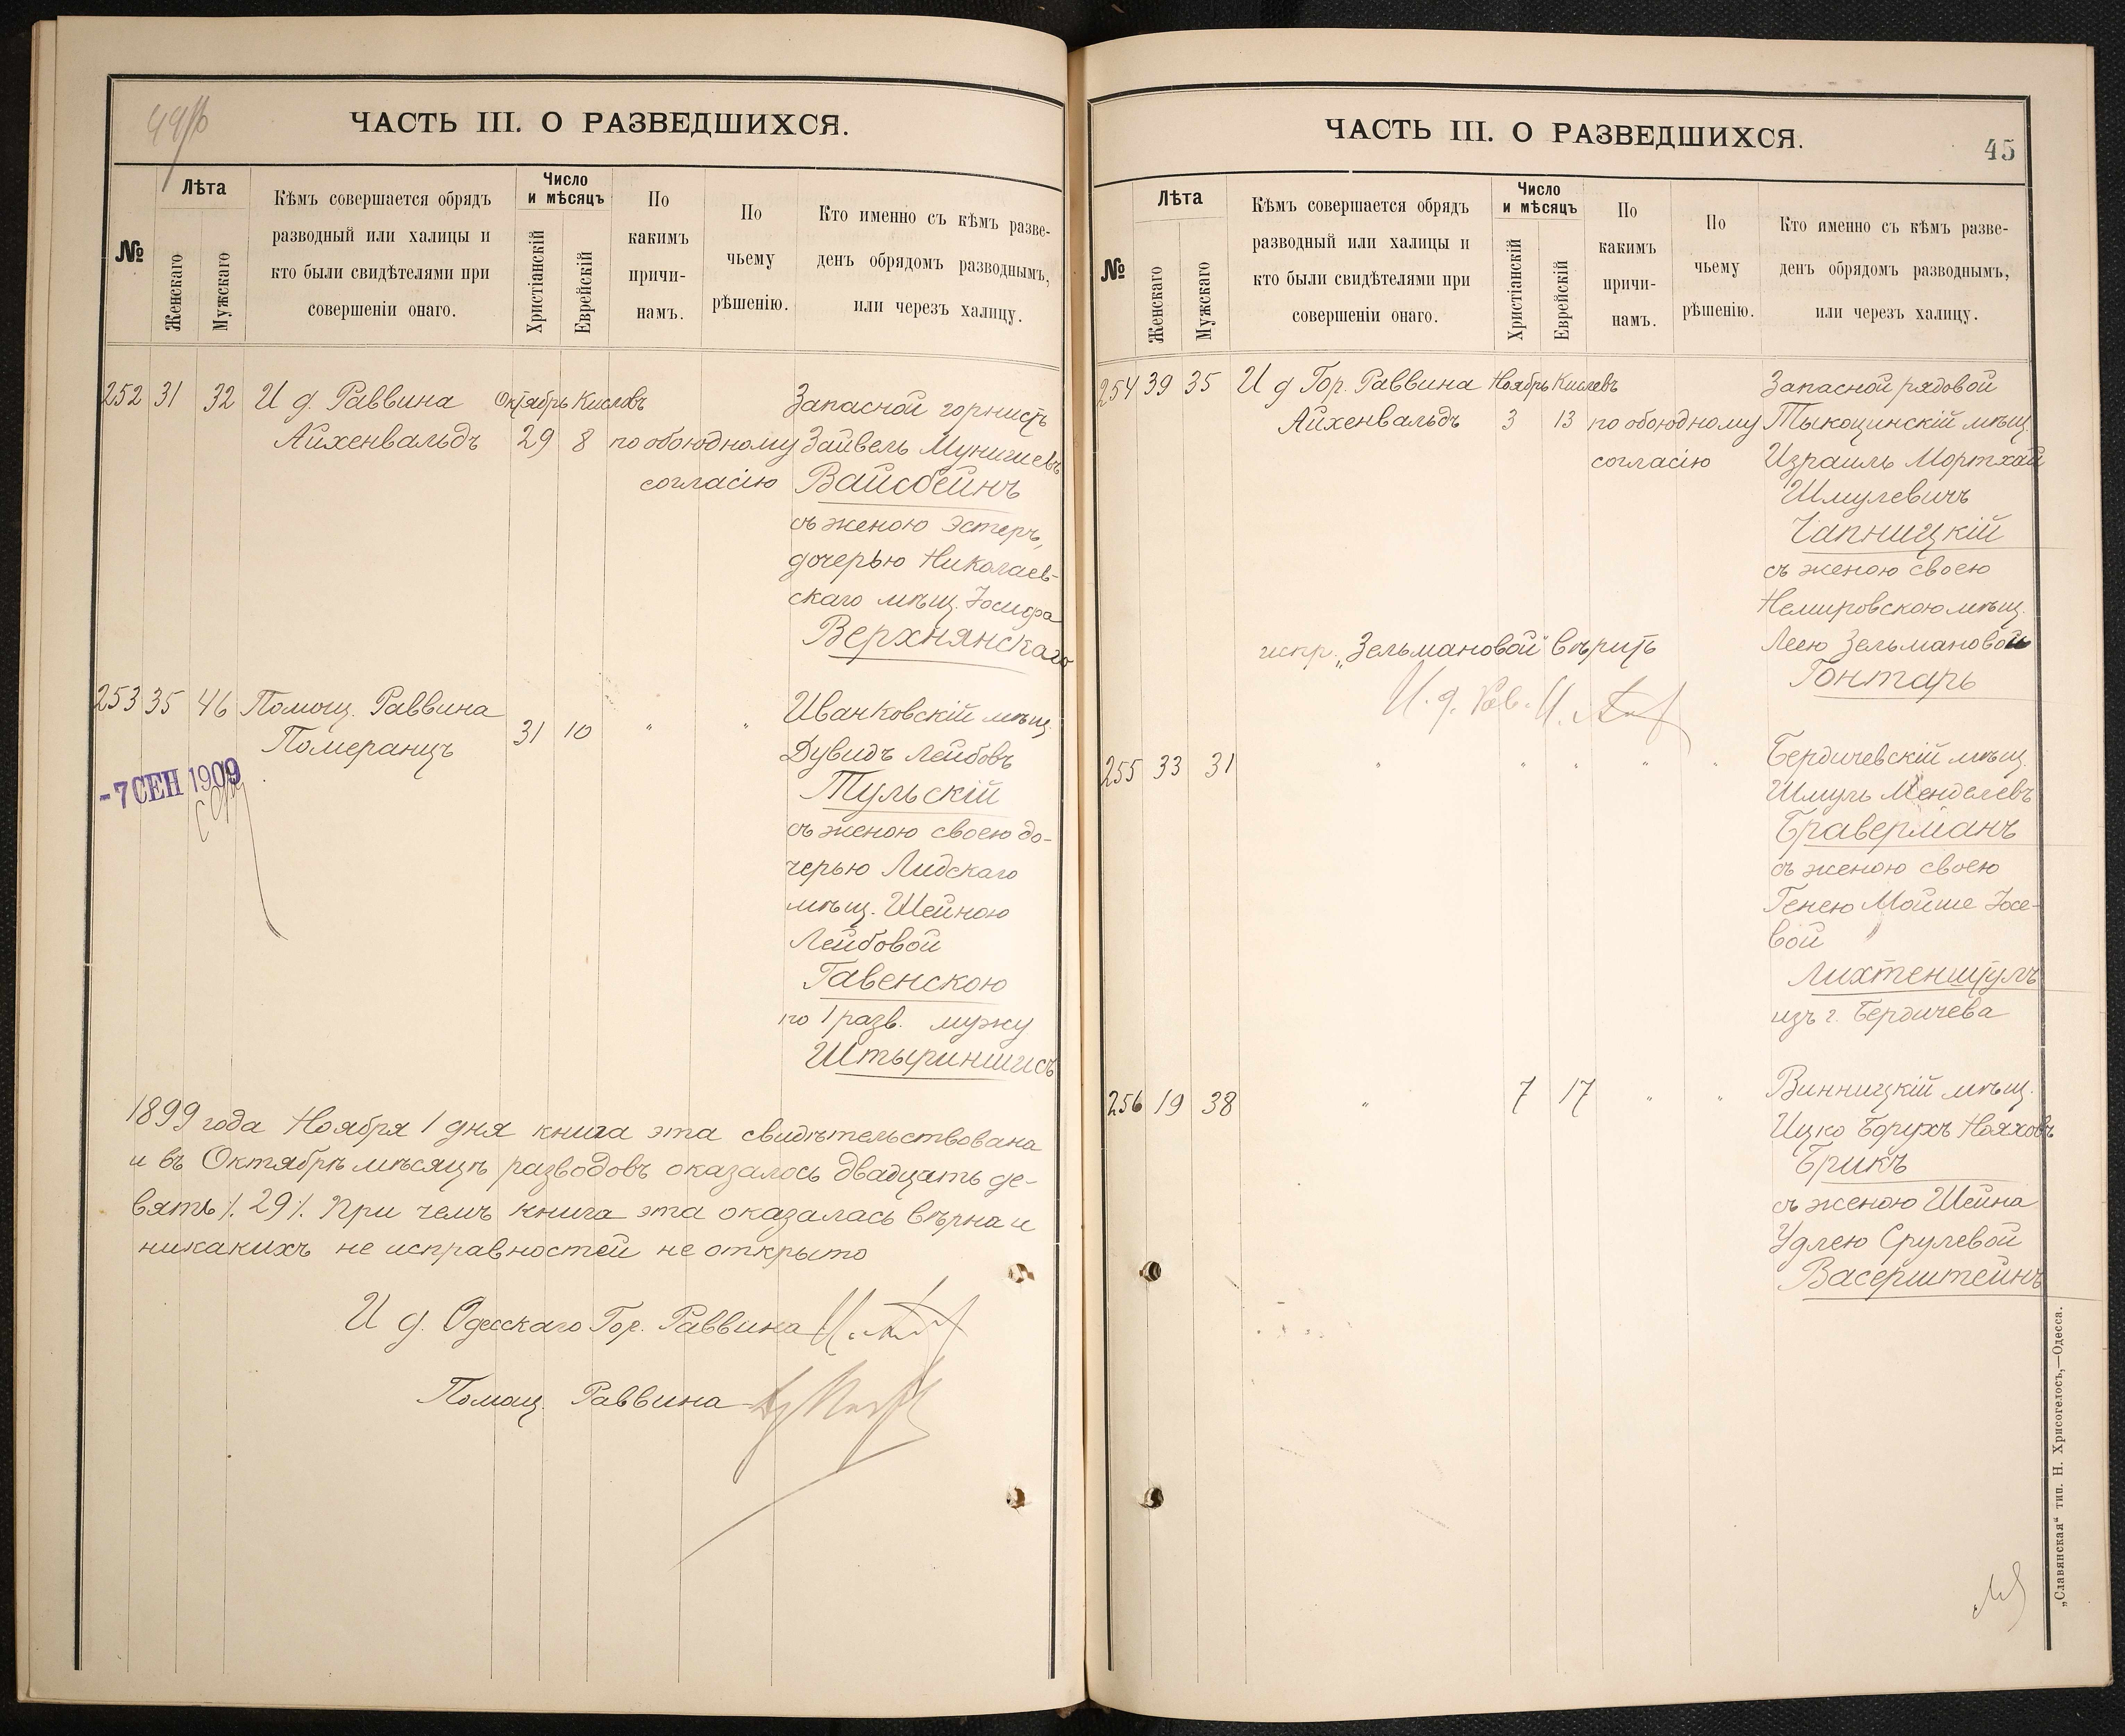 ЧАСТЬ III. О РАЗВЕДШИХСЯ.
№
Лѣта
Женскаго
Мужскаго
Кѣмъ совершается обрядъ
разводный или халицы и
кто были свидѣтелями при
совершеніи онаго.
Число
и мѣсяцъ
Христіанскій
Еврейскій
По
какимъ
причи-
намъ.
По
чьему
рѣшенію.
Кто именно съ кѣмъ разве-
денъ обрядомъ разводнымъ,
или черезъ халицу.
252 31 32 И д. Раввина Октябрь Кислевъ Запасной горнистъ
Айхенвальдъ 29 8 по обоюдному Зайвель Муничиевъ
согласію Вайсбейнъ
съ женою Эстеръ,
дочерью Николаев-
скаго мѣщ. Іосифа
Верхнянскаго
253 35 46 Помощ. Раввина 31 10 " " Иванковскій мѣщ.
Померанцъ Дувидъ Лейбовъ
-7 СЕН 1909
Тульскій
съ женою своею до-
черью Лидскаго
мѣщ. Шейною
Лейбовой
Гавенскою
по 1 разв. мужу
Штыриншисъ
1899 года Ноября 1 дня книга эта свидѣтельствована
и въ Октябрѣ мѣсяцѣ разводовъ оказалось двадцать де-
вять ⁒ 29 ⁒ При чемъ книга эта оказалась вѣрна и
никакихъ не исправностей не открыто
И д. Одесскаго Гор. Раввина
Помощ. Раввина
ЧАСТЬ III. О РАЗВЕДШИХСЯ.
45
№
Лѣта
Женскаго
Мужскаго
Кѣмъ совершается обрядъ
разводный или халицы и
кто были свидѣтелями при
совершеніи онаго.
Число
и мѣсяцъ
Христіанскій
Еврейскій
По
какимъ
причи-
намъ.
По
чьему
рѣшенію.
Кто именно съ кѣмъ разве-
денъ обрядомъ разводнымъ,
или черезъ халицу.
254 39 35 И д Гор. Раввина Ноябрь Кислевъ Запасной рядовой
Айхенвальдъ 3 13 по обоюдному Тыкоцинскій мѣщ.
согласію Израиль Мортхай
Шмулевичъ
Чапницкій
съ женою своею
Немировскою мѣщ.
испр. „Зельмановой" вѣрить Леею Зельмановой
Гонтарь
И. д. Рав.
255 33 31 " " " " " Бердичевскій мѣщ.
Шмуль Менделевъ
Браверманъ
съ женою своею
Генею Мойше Іосе-
вой
Лихтенштулъ
изъ г. Бердичева
256 19 38 " 7 17 " " Винницкій мѣщ.
Ицко Борухъ Нояховъ
Брикъ
съ женою Шейна
Удлею Срулевой
Васерштейнъ
„Славянская" тип. Н. Хрисогелосъ,—Одесса.